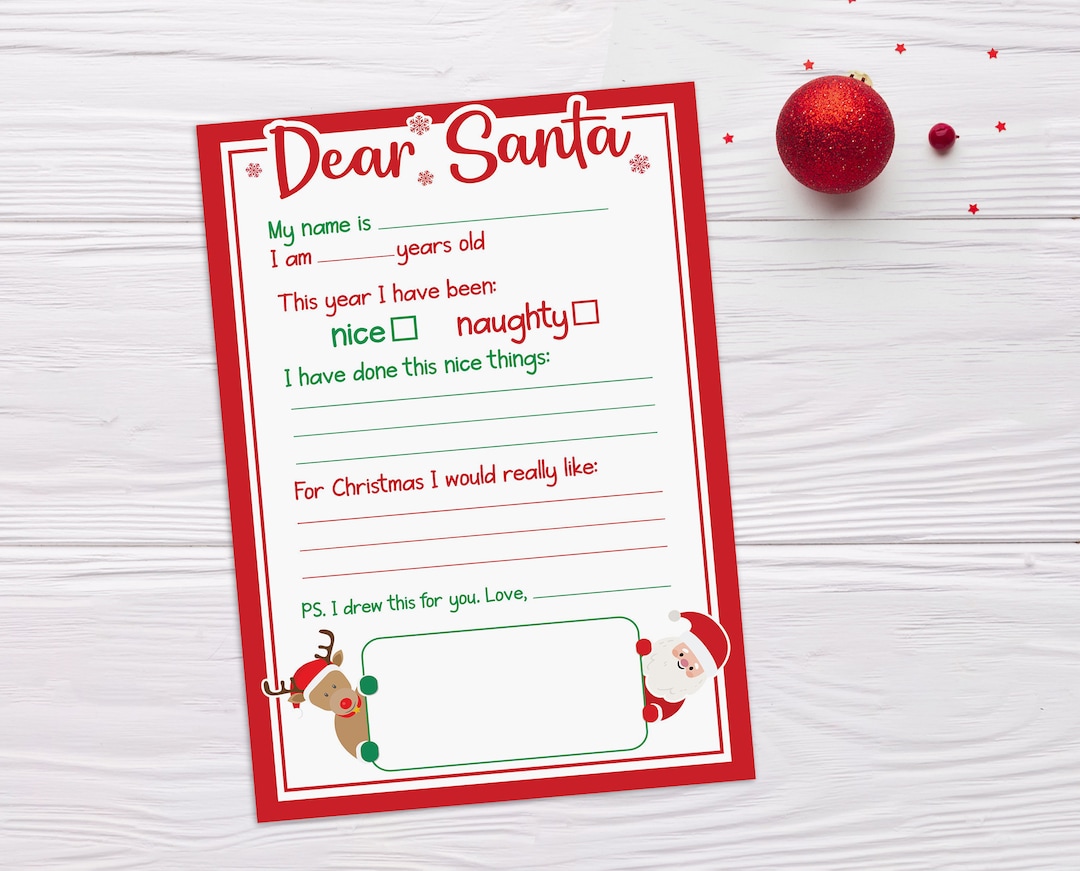 Dear Santa
My name is
I am years old
This year I have been:
nice naughty
I have done this nice things:
For Christmas I would really like:
PS. I drew this for you. Love,